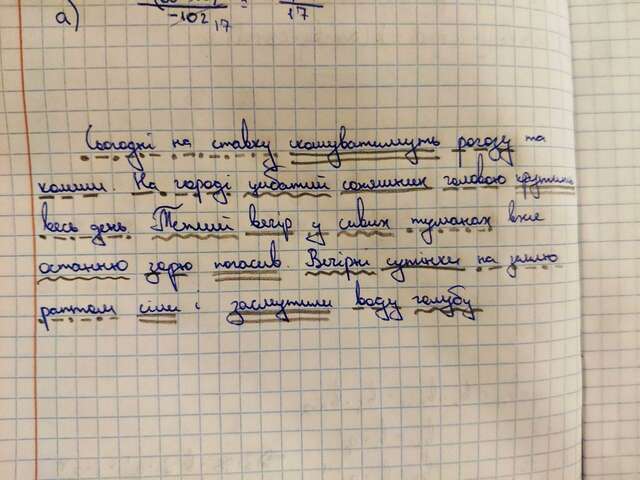 а)
-102 17 = 17
Сьогодні на ставку скошуватимуть рогозу та
комиш. На городі цибатий соняшник головою крутить
весь день. Теплий вечір у сивих туманах вже
останню зорю погасив. Вечірні сутінки на землю
раптом сіли і засмутили воду голубу